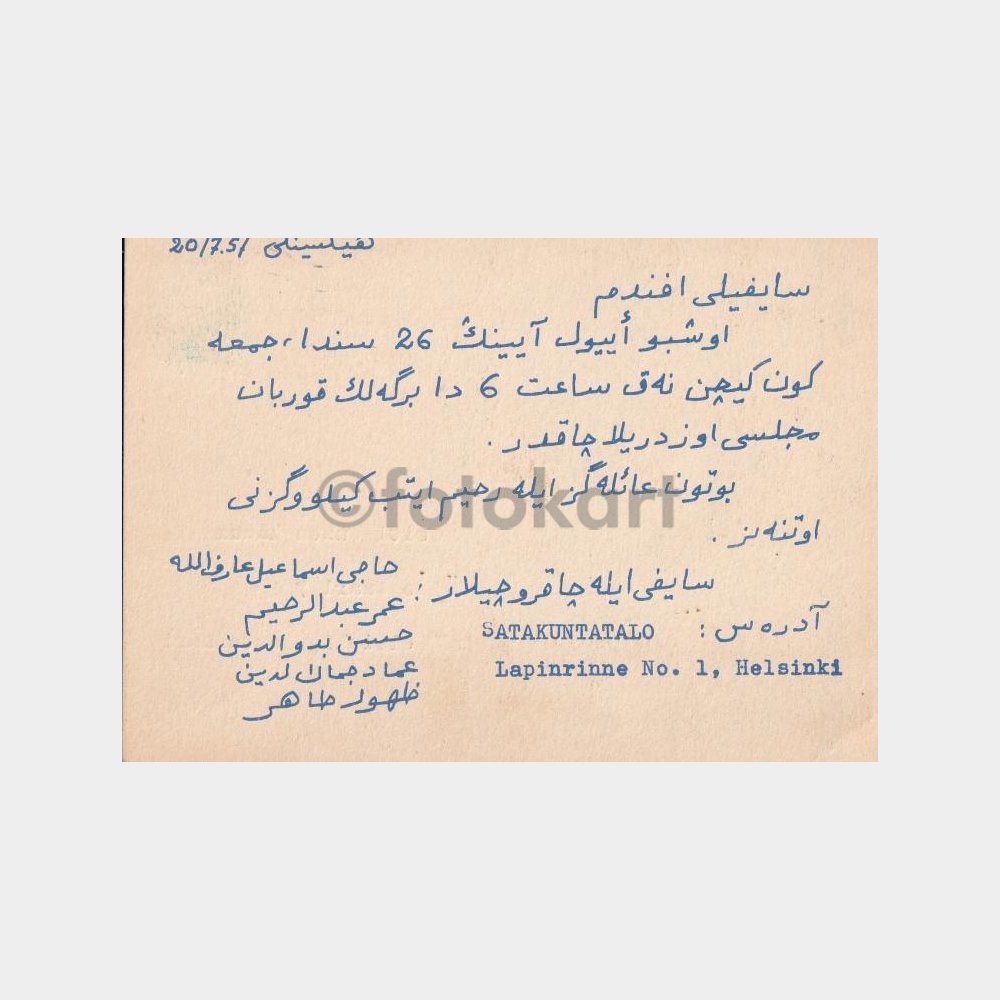 هلسينكى 20/7.51
سايفيلى افندم
اوشبو أييول آيينڭ 26 سندا، جمعه
كون كيچن نەق ساعت 6 دا برگەلك قوربان
مجلسى اوزدريلاچاقدر.
بوتون عائلەگز ايله رحيم ايتب كيلووگزنى
اوتنەبز.
سايفى ايله چاقروچيلار:
حاجى اسماعيل عارف الله
عمر عبدالرحيم
حسن بدوالدين
عماد جمال لدين
ظهور طاهر
آدرەس: SATAKUNTATALO
Lapinrinne No. 1, Helsinki
©fotokart